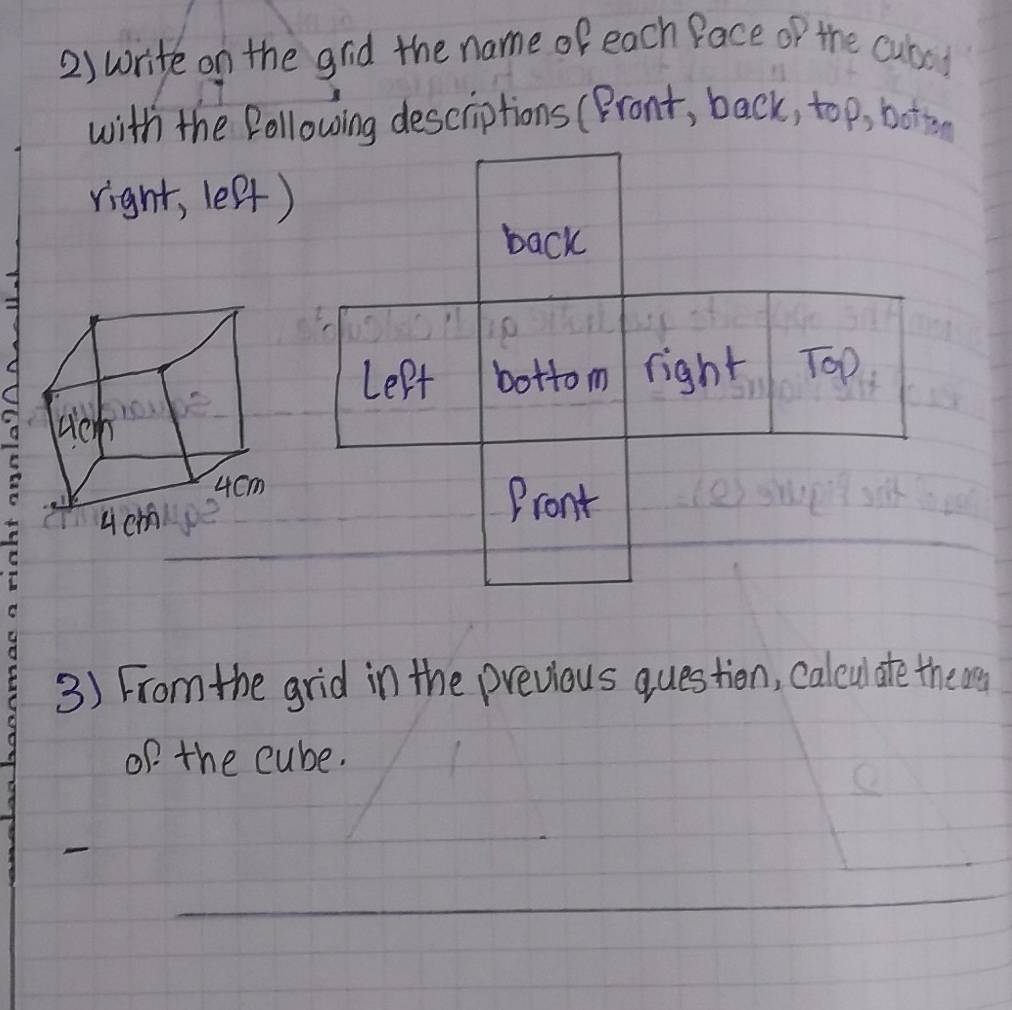 2) Write on the grid the name of each face of the cuboid
with the following descriptions (front, back, top, bottom
right, left)
back
Left bottom right Top
front
4cm
4cm
4cm
3) From the grid in the previous question, calculate the area
of the cube.
-